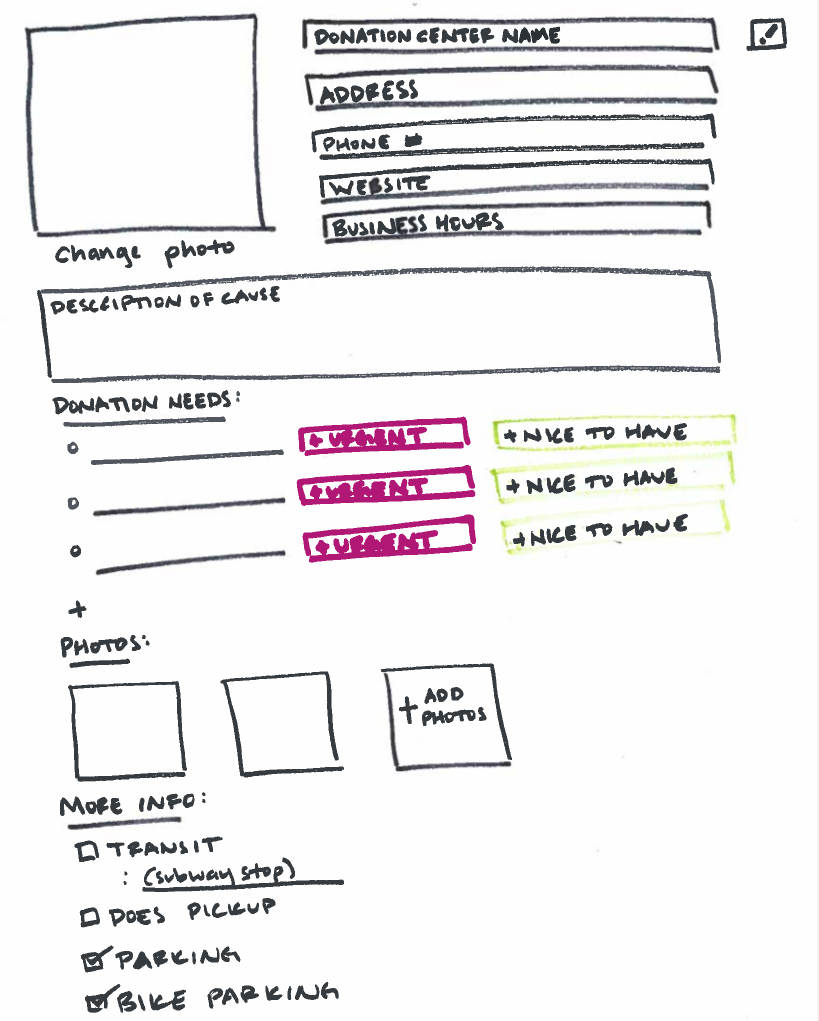 DONATION CENTER NAME
ADDRESS
PHONE #
WEBSITE
BUSINESS HOURS
Change photo
DESCRIPTION OF CAUSE
DONATION NEEDS:
+ URGENT + NICE TO HAVE
+ URGENT + NICE TO HAVE
+ URGENT + NICE TO HAVE
+
PHOTOS:
+ ADD
PHOTOS
MORE INFO:
TRANSIT
: (subway stop)
DOES PICKUP
PARKING
BIKE PARKING